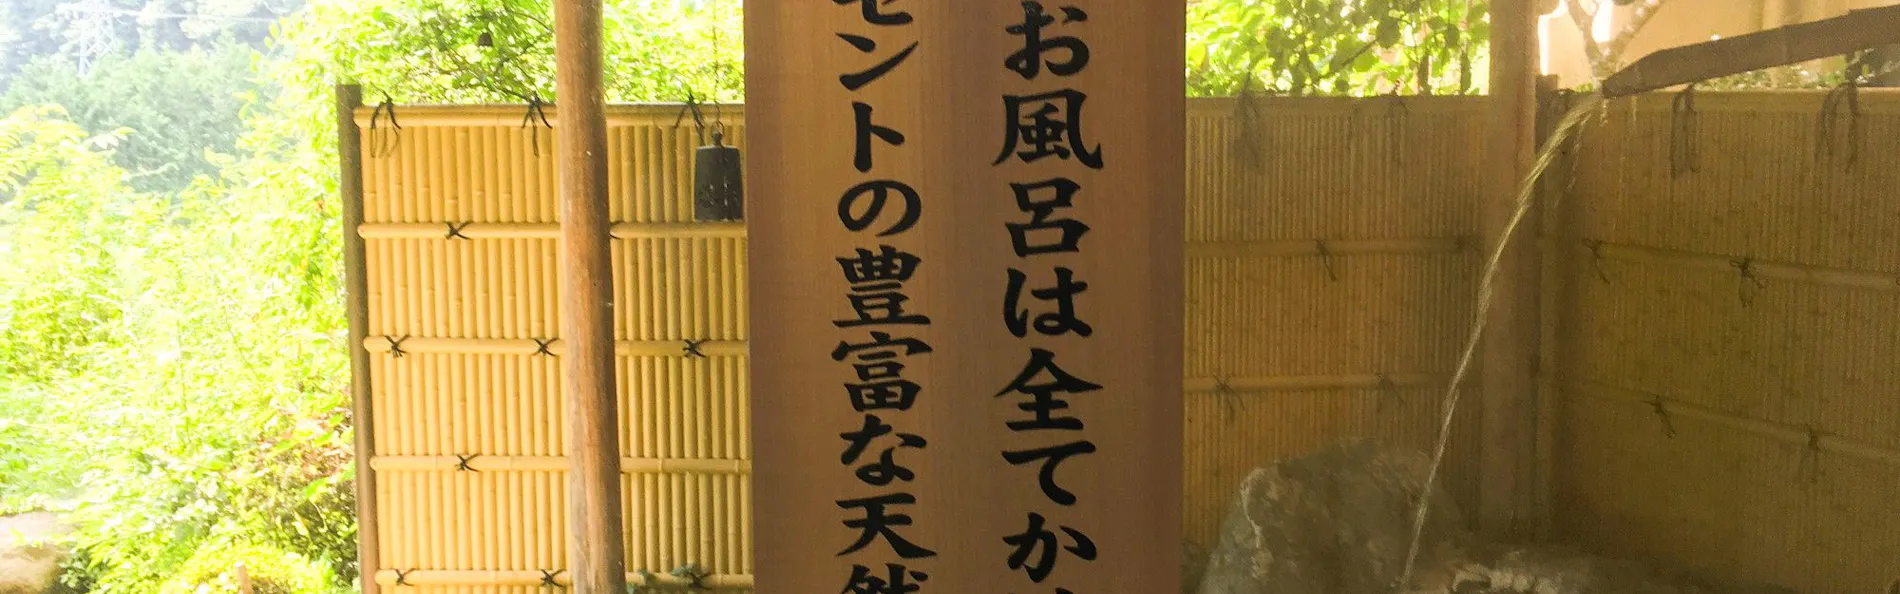 お風呂は全てか
セントの豊富な天然